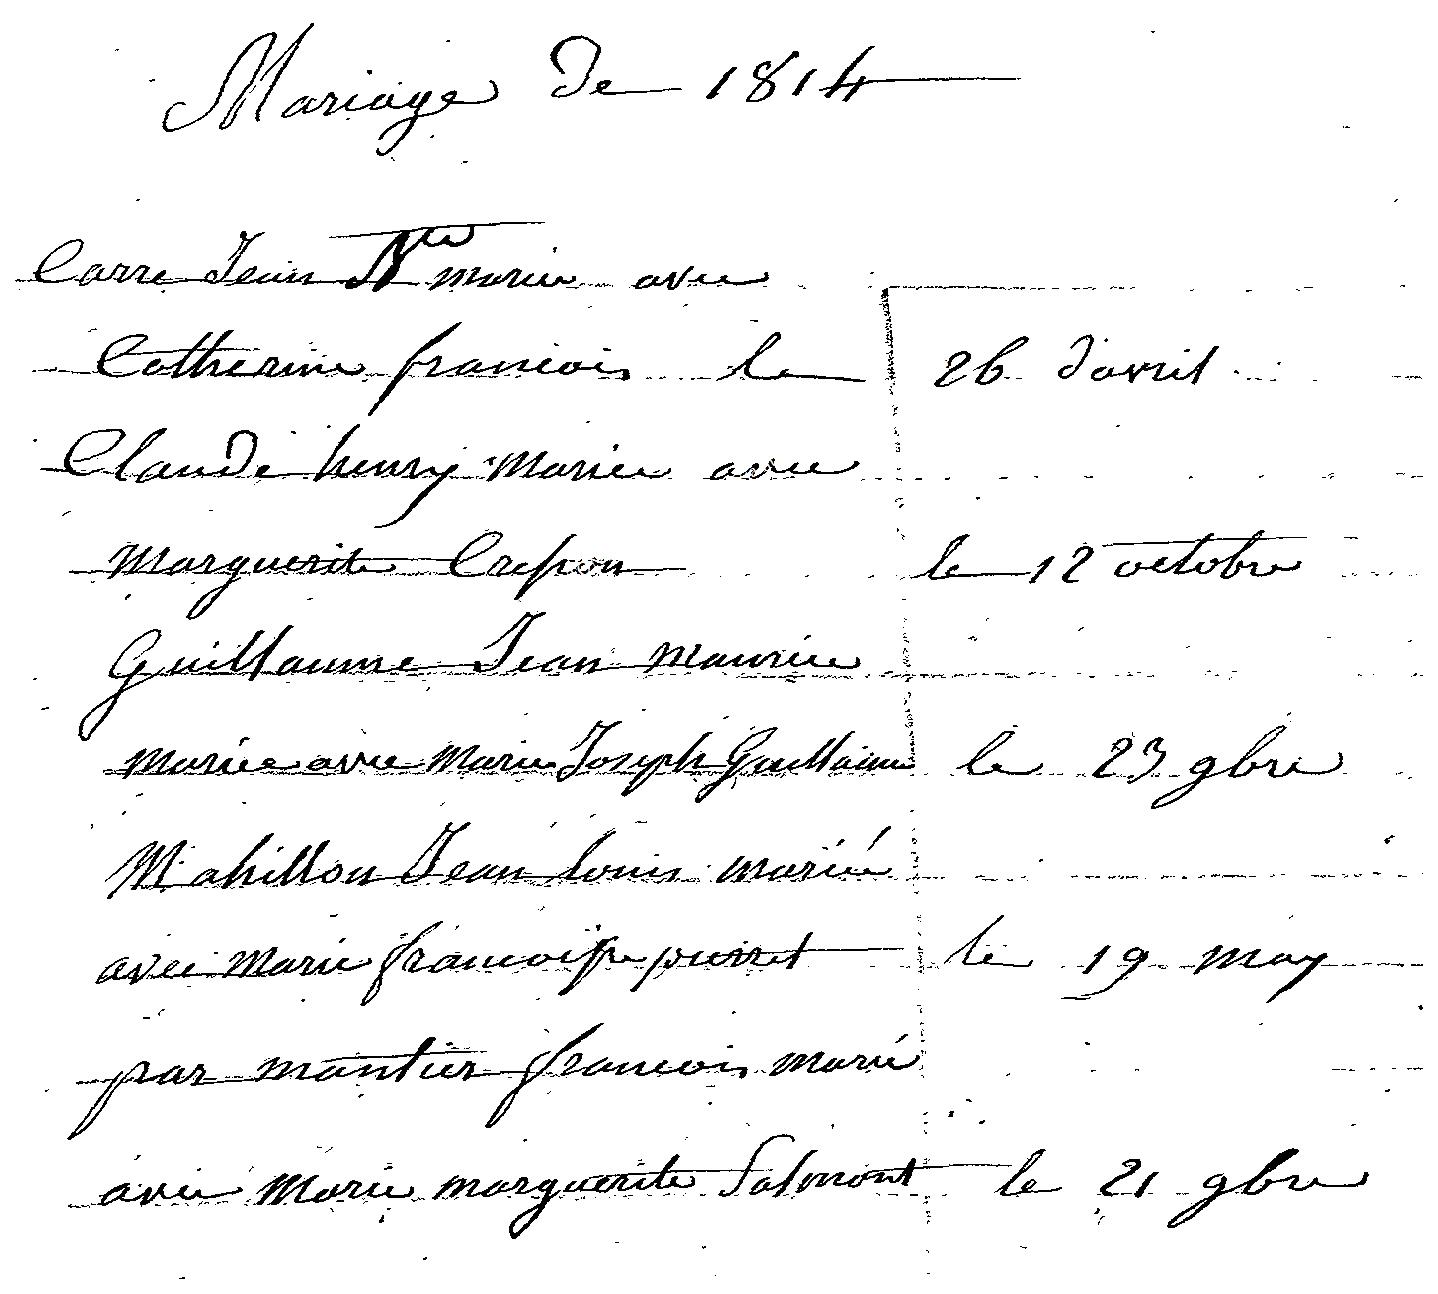 Mariage de 1814
Carre Jean Bte mariée avec
Catherine francois le 26 d'avril
Claude henry Mariée avec
Marguerite Crepon le 12 octobre
Guillaume Jean Maurice
mariée avec Marie Joseph Guillaume le 23 9bre
Mahillon Jean louis mariée
avec Marie francoise pierret le 19 may
parmantier francois marié
avec Marie marguerite Salmont le 21 9bre